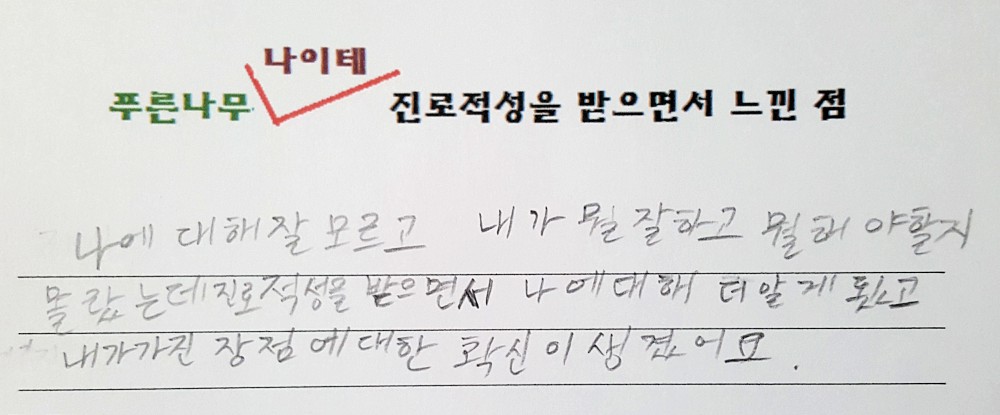 나이테
푸른나무 진로적성을 받으면서 느낀 점
나에 대해 잘 모르고 내가 뭘 잘하고 뭘해 야할지
몰랐는데 진로적성을 받으면서 나에대해 더 알게 됐고
내가가진 장점에 대한 확신이 생겼어요.